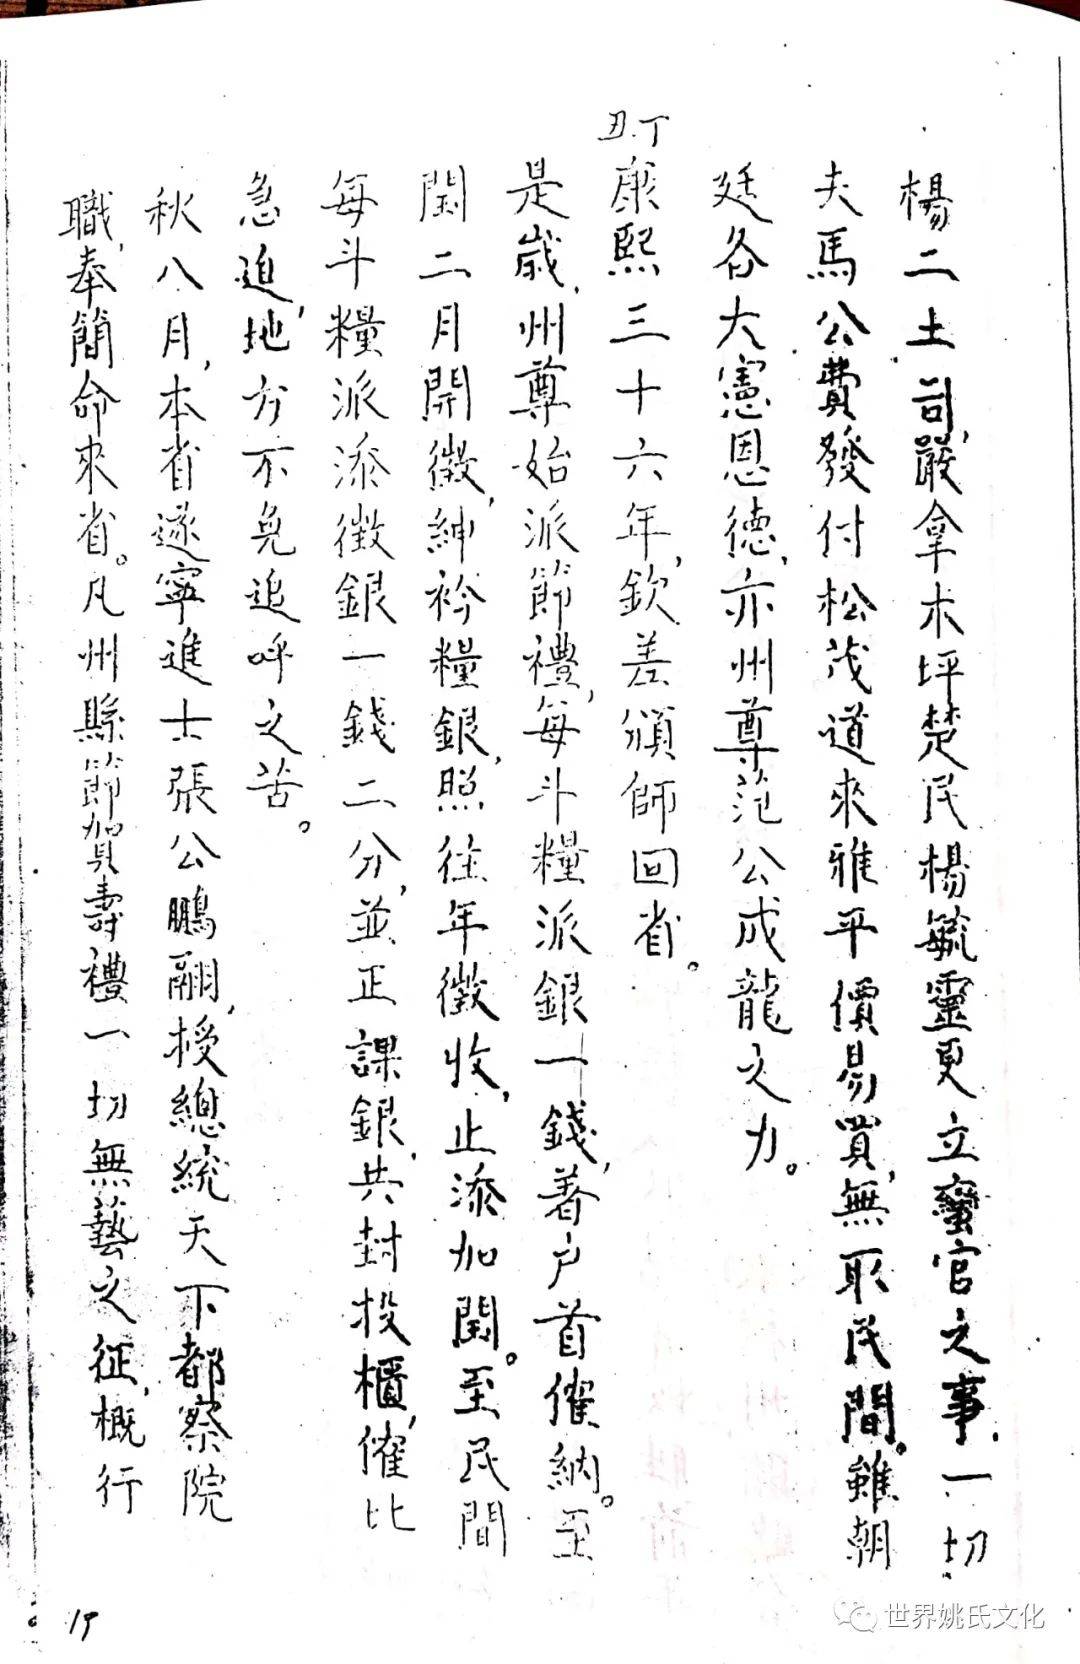 楊二土司,嚴拿木坪楚民楊毓靈更立蠻官之事.一切
夫馬公費發付松茂道來雅平價易買,無取民間。雖朝
廷各大憲恩德,亦州尊范公成龍之力。
丁丑
康熙三十六年,欽差頒師回省。
是歲,州尊始派節禮,每斗糧派銀一錢,著户首催納。至
閏二月開徵,紳衿糧銀,照往年徵收,止添加閏。至民間
每斗糧派添徵銀一錢二分,並正課銀,共封投櫃,催比
急迫,地方不免追呼之苦。
秋八月,本省遂寧進士張公鵬翮,授總統天下都察院
職,奉簡命來省。凡州縣節賀壽禮一切無藝之征,概行
19
世界姚氏文化